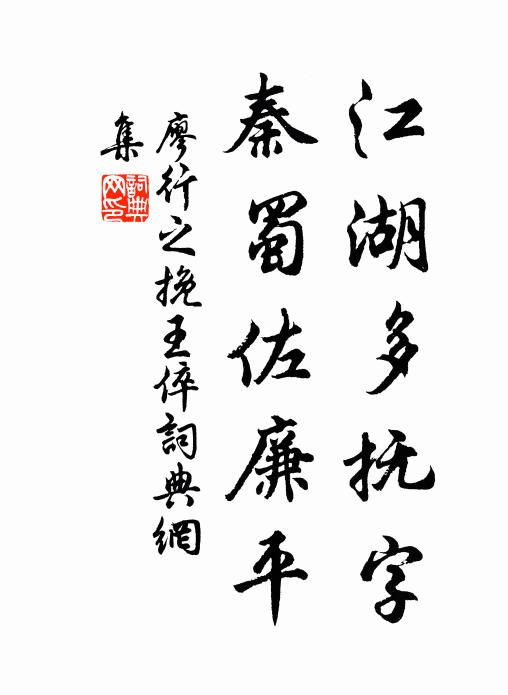 江湖多抚字
秦蜀佐廉平
廖行之挽王倅詞典網
集
詞典网印